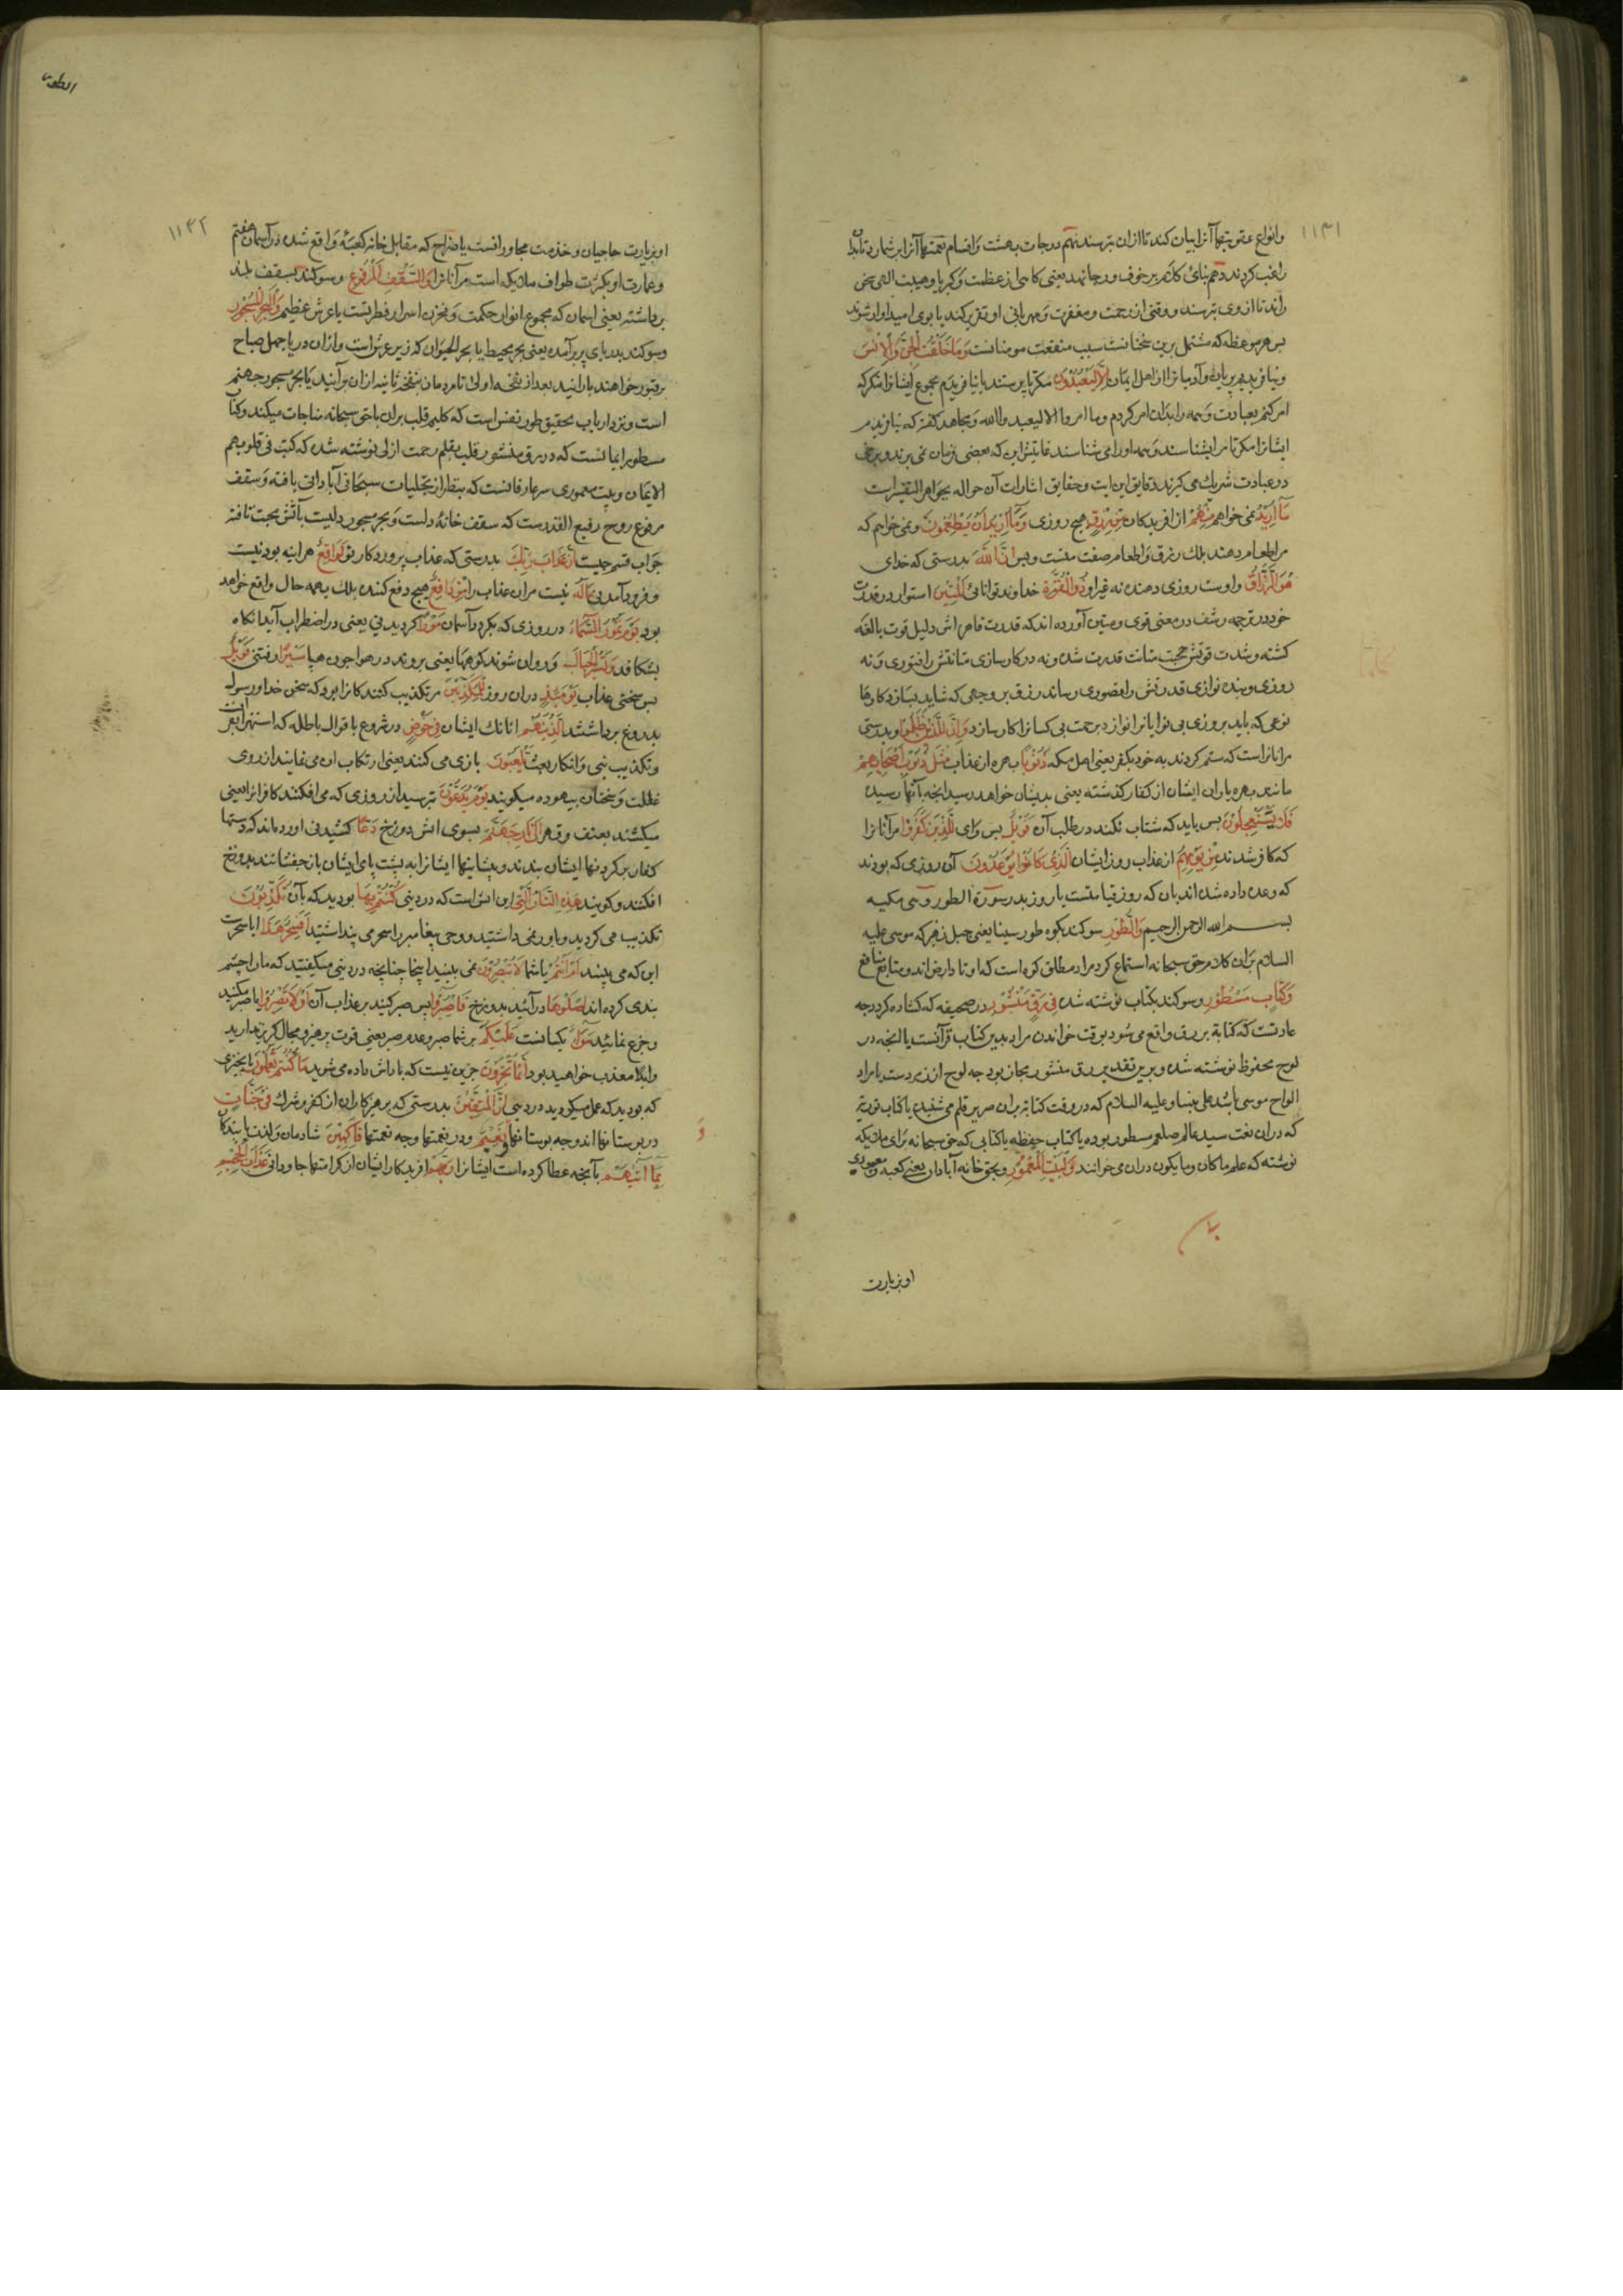 ۱۱۳۱
وانواع عقوبتهاء آنرا بیان کند تا ازان بترسند نهم درجات بهشت واقسام نعمتهاء آنرا بر شمارد تا بدان
راغب کردند دهم بنای کلام بر خوف و رجا نهد یعنی کاهی از عظمت و کبریا و هیبت الهی سخن
راند تا از وی بترسند و وقتی از رحمت و مغفرت و مهربانی او تقریر کند تا بوی امیدوار شوند
پس هر موعظه که مشتمل برین سخنانست سبب منفعت مومنانست وَمَا خَلَقْتُ الْجِنَّ وَالْاِنْسَ
ونیافریدم پریان و آدمیانرا از اهل ایمان اِلَّا لِیَعْبُدُوْنِ مکر تا پرستند یا نیافریدم مجموع ایشانرا مکر که
امر کنم بعبادت و همه را بدان امر کردم وما امروا الا لیعبدوالله و مجاهد کفته که نیافریدم
ایشانرا مکر تا مرا بشناسند و همه اورا می شناسند غایتش این که بعضی فرمان نمی برند و برخی
در عبادت شریك می کیرند دقایق این ایت و حقایق اشارات آن حواله بجواهر التفسیر است
مَا اُرِیْدُ نمی خواهم مِنْهُمْ از افریدکان مِنْ رِزْقٍ هیچ روزی وَمَا اُرِیْدُ اَنْ یُطْعِمُوْنِ ونمی خواهم که
مرا طعام دهند بلك رزق و اطعام صفت منست وبس اِنَّ اللّٰهَ بدرستی که خدای
هُوَ الرَّزَّاقُ واوست روزی دهنده نه غیر او ذُو الْقُوَّةِ خداوند توانائی الْمَتِیْنُ استوار در قدرت
خود در ترجمه رشف در معنی قوی و متین آورده اند که قدرت قاهراش دلیل قوت بالغه
کشته و شدت قوتش حجت متانت قدرت شده و نه در کار سازی متانتش را فتوری و نه
روزی و بنده نوازی قدرتش را قصوری رساند رزق بر وجهی که شاید بسازد کارها
نوعی که باید بروزی بی نوایانرا نوازد برحمت بی کسانرا کار سازد وَاِنَّ لِلَّذِیْنَ ظَلَمُوْا وبدرستی
مرانانراست که ستم کردند به خود بکفر یعنی اهل مکه ذَنُوْبًا بهره از عذاب مِثْلَ ذَنُوْبِ اَصْحَابِهِمْ
مانند بهره یاران ایشان از کفار کذشته یعنی بدیشان خواهد رسید انچه بآنها رسیده
فَلَا یَسْتَعْجِلُوْنِ بس باید که شتاب نکنند در طلب آن فَوَیْلٌ بس وای لِلَّذِیْنَ کَفَرُوْا مر آنانرا
که کافر شدند مِنْ یَوْمِهِمُ از عذاب روز ایشان الَّذِیْ کَانُوْا یُوْعَدُوْنَ آن روزی که بودند
که وعده داده شده اند بان که روز قیامتست یا روز بدر سورة الطور وهی مکیه
بسم الله الرحمن الرحیم وَالطُّوْرِ سوکند بکوه طور سینا یعنی جبل زبیر که موسی علیه
السلام بران کلام حق سبحانه استماع کرد مراد مطلق کوه است که اوتاد ارض اند و منابع منافع
وَکِتَابٍ مَسْطُوْرٍ وسوکند بکتاب نوشته شده فِیْ رَقٍّ مَنْشُوْرٍ در صحیفه که کشاده کردد چه
عادتست که کتابة بر رق واقع می شود بوقت خواندن مراد بدین کتاب قرآنست یا انچه در
لوح محفوظ نوشته شده و برین تقدیر رق منشور مجاز بود چه لوح از زبرجدست یا مراد
الواح موسی باشد علی نبینا و علیه السلام که در وقت کتابة بران صریر قلم می شنید یا کتاب توریة
که دران نعت سید عالم صلعم مسطور بوده یا کتاب حفظه یا کتابی که حق سبحانه برای ملایکه
نوشته که علم ماکان وما یکون دران می خوانند وَالْبَیْتِ الْمَعْمُوْرِ وبحق خانه آبادان یعنی کعبه و معموری
او بزیارت
الطور
۱۱۳۲
او بزیارت حاجیان و خدمت مجاورانست یا ضراح که مقابل خانه کعبه واقع شده در آسمان هفتم
وعمارت او بکثرت طواف ملایکه است مر آنانرا وَالسَّقْفِ الْمَرْفُوْعِ وسوکند بسقف بلند
برداشته یعنی اسمان که مجموع انوار حکمت و مخزن اسرار فطرتست یا عرش عظیم وَالْبَحْرِ الْمَسْجُوْرِ
وسوکند بدریای پر برآمده یعنی بحر محیط یا بحر الحیوان که زیر عرش است وازان دریا چهل صباح
بر قبور خواهند بارانید بعد از نفخه اولی تا مردمان بنفخه ثانیه ازان برآیند یا بحر مسجور جهنم
است و نزد ارباب تحقیق طور نفس است که کلیم قلب بران باحق سبحانه مناجات میکند و کتاب
مسطور ایمانست که در رق منشور قلب بقلم رحمت ازلی نوشته شده که کتب فی قلوبهم
الایمان وبیت معمور سر عارفانست که بنظر از تجلیات سبحانی آبادانی یافته وسقف
مرفوع روح رفیع القدرست که سقف خانهٔ دلست و بحر مسجور دلیست بآتش محبت تافته
جواب قسم چیست اِنَّ عَذَابَ رَبِّكَ بدرستی که عذاب پروردکار تو لَوَاقِعٌ هراینه بودنیست
و فرود آمدنی مَا لَهُ نیست مر آن عذاب را مِنْ دَافِعٍ هیچ دفع کننده بلك بهمه حال واقع خواهد
بود یَوْمَ تَمُوْرُ السَّمَاءُ در روزی که بکردد آسمان مَوْرًا کردیدنی یعنی در اضطراب آید انکاه
بشکافد وَتَسِیْرُ الْجِبَالُ و روان شوند کوهها یعنی بروند در هوا چون هبا سَیْرًا رفتنی فَوَیْلٌ
بس سختی عذاب یَوْمَئِذٍ دران روز لِلْمُکَذِّبِیْنَ مر تکذیب کنندکانرا بود که سخن خدا و رسول
بدروغ برداشتند اَلَّذِیْنَ هُمْ انانك ایشان فِیْ خَوْضٍ در شروع باقوال باطله که استهزا بقرآنست
وتکذیب نبی وانکار بعث یَلْعَبُوْنَ بازی می کنند یعنی ارتکاب ان می نمایند از روی
غفلت و سخنان بیهوده میکویند یَوْمَ یُدَعُّوْنَ بترسید از روزی که می افکنند کافرانرا یعنی
میکشند بعنف و قهر اِلٰی نَارِ جَهَنَّمَ بسوی اتش دوزخ دَعًّا کشیدنی اورده اند که دستها
کفار بر کردنها ایشان بندند و پیشانیها ایشانرا به پشت پای ایشان باز جفسانند بدوزخ
افکنند و کویند هٰذِهِ النَّارُ الَّتِیْ این اتش است که در دینی کُنْتُمْ بِهَا بودید که بآن تُکَذِّبُوْنَ
تکذیب می کردید و باور نمی داشتید و وحی پیغامبر را سحر می پنداشتید اَفَسِحْرٌ هٰذَا ایا سحرست
این که می بینید اَمْ اَنْتُمْ یا شما لَا تُبْصِرُوْنَ نمی بینید اینجا چنانچه در دینی میکفتید که مارا چشم
بندی کرده اند اِصْلَوْهَا درآئید بدوزخ فَاصْبِرُوْا پس صبر کنید بر عذاب آن اَوْ لَا تَصْبِرُوْا یا صبر مکنید
وجزع نمائید سَوَاءٌ یکسانست عَلَیْکُمْ بر شما صبر و عدم صبر یعنی قوت پرهیز و مجال کریز ندارید
وابدا معذب خواهید بود اِنَّمَا تُجْزَوْنَ جزین نیست که پاداش داده می شوید مَا کُنْتُمْ تَعْمَلُوْنَ بانچیزی
که بودید که عمل میکردید در دینی اِنَّ الْمُتَّقِیْنَ بدرستی که پرهیزکاران از کفر و شرك فِیْ جَنَّاتٍ
در بوستانها اند و چه بوستانها وَنَعِیْمٍ ودر نعمتها وچه نعمتها فَاکِهِیْنَ شادمان ولذت یابندکان
بِمَا اٰتٰیهُمْ بآنچه عطا کرده است ایشانرا رَبُّهُمْ افریدکار ایشان از کرامتها جاودانی عَذَابَ الْجَحِیْمِ